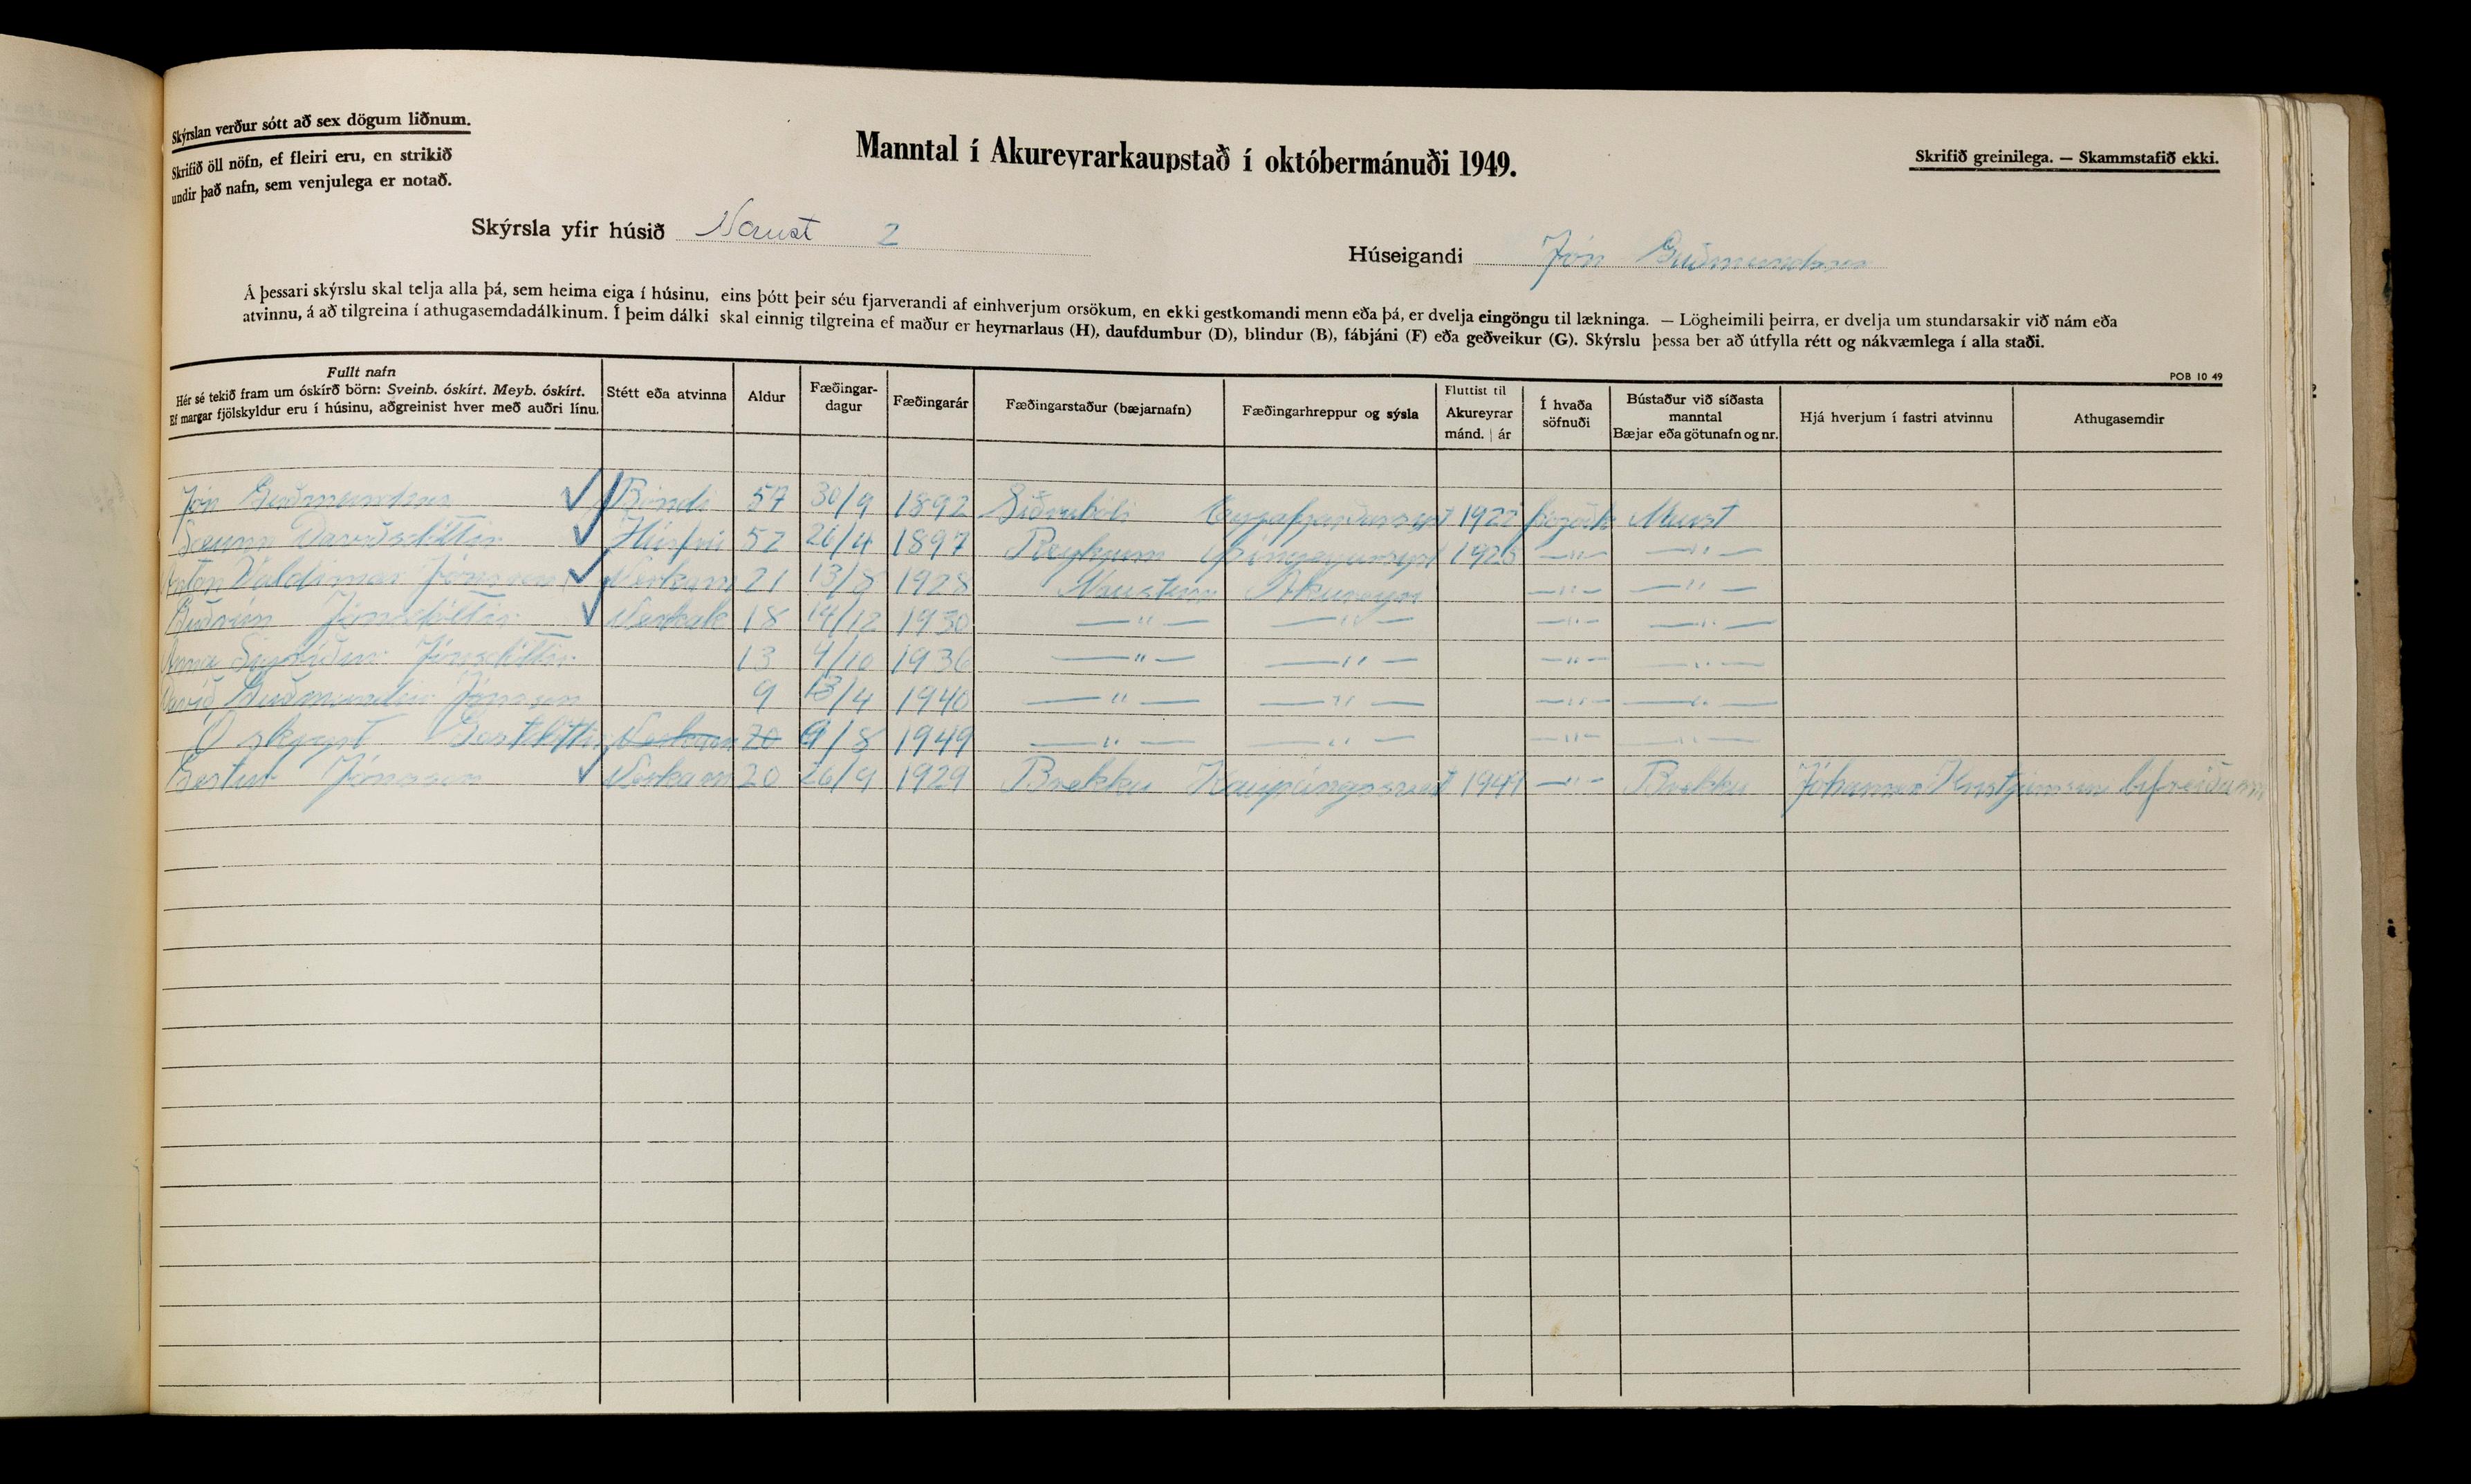 Skýrslan verður sótt að sex dögum liðnum.
Skrifið öll nöfn, ef fleiri eru, en strikið
undir það nafn, sem venjulega er notað.
Manntal í Akureyrarkaupstað í októbermánuði 1949.
Skrifið greinilega. — Skammstafið ekki.
Skýrsla yfir húsið Naust 2
Húseigandi Jón Guðmundsson
Á þessari skýrslu skal telja alla þá, sem heima eiga í húsinu, eins þótt þeir séu fjarverandi af einhverjum orsökum, en ekki gestkomandi menn eða þá, er dvelja eingöngu til lækninga. — Lögheimili þeirra, er dvelja um stundarsakir við nám eða
atvinnu, á að tilgreina í athugasemdadálkinum. Í þeim dálki skal einnig tilgreina ef maður er heyrnarlaus (H), daufdumbur (D), blindur (B), fábjáni (F) eða geðveikur (G). Skýrslu þessa ber að útfylla rétt og nákvæmlega í alla staði.
POB 10 49
Fullt nafn
Hér sé tekið fram um óskírð börn: Sveinb. óskírt. Meyb. óskírt.
Ef margar fjölskyldur eru í húsinu, aðgreinist hver með auðri línu.
Stétt eða atvinna
Aldur
Fæðingar-
dagur
Fæðingarár
Fæðingarstaður (bæjarnafn)
Fæðingarhreppur og sýsla
Fluttist til
Akureyrar
mánd. | ár
Í hvaða
söfnuði
Bústaður við síðasta
manntal
Bæjar eða götunafn og nr.
Hjá hverjum í fastri atvinnu
Athugasemdir
Jón Guðmundsson ✓ Bóndi 57 30/9 1892 Eyjafjarðarsýsl 1922 Naust
Davíðsdóttir ✓ Húsfrú 52 26/4 1897 Reykjum Þingeyjarsýsl — " — — " —
Anton Valdimar Jónsson ✓ Verkam 21 13/8 1928 Naustum Akureyri — " — — " —
Guðrún Jónsdóttir ✓ Verkak 18 14/12 1930 — " — — " — — " — — " —
Anna Sigríður Jónsdóttir 13 9/10 1936 — " — — " — — " — — " —
Davíð Guðmundur Jónsson 9 13/4 1940 — " — — " — — " — — " —
Óskýrt Gestsdóttir Verkam 20 9/8 1949 — " — — " — — " — — " —
Gestur Jónsson ✓ Verkam 20 26/9 1929 Brekku Kaupángssveit — " — Brekku Jóhannes Kristjánsson